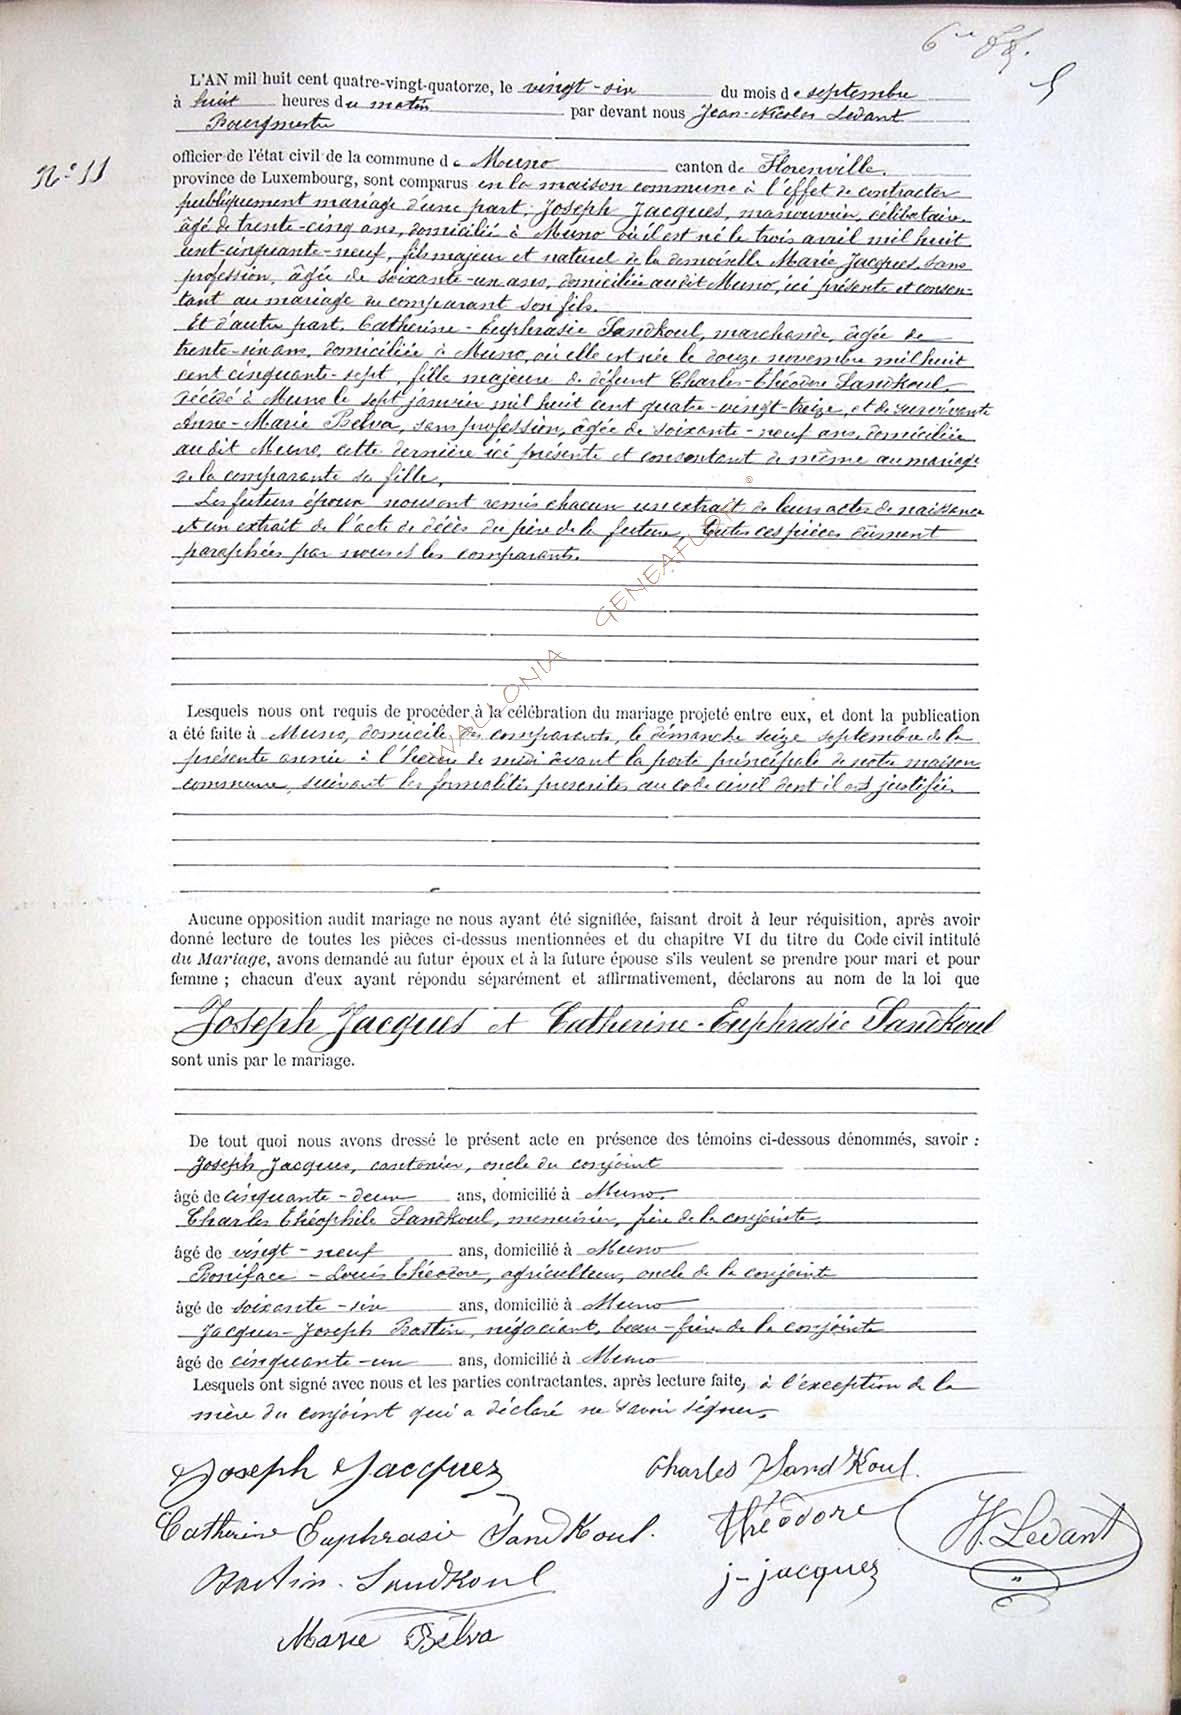 L'AN mil huit cent quatre-vingt-quatorze, le vingt-six du mois de septembre
à huit heures du matin par devant nous Jean-Nicolas Ledant
Bourgmestre
N° 11
officier de l'état civil de la commune de Muno canton de Florenville
province de Luxembourg, sont comparus en la maison commune à l'effet de contracter
publiquement mariage d'une part, Joseph Jacques, manouvrier, célibataire,
âgé de trente-cinq ans, domicilié à Muno où il est né le trois avril mil huit
cent-cinquante-neuf, fils majeur et naturel de la demoiselle Marie Jacques, sans
profession, âgée de soixante-un ans, domiciliée au dit Muno, ici présente et consen-
tant au mariage du comparant son fils.
Et d'autre part, Catherine-Euphrasie Sandkoul, marchande, âgée de
trente-six ans, domiciliée à Muno, où elle est née le douze novembre mil huit
cent cinquante-sept, fille majeure de défunt Charles-Théodore Sandkoul
décédé à Muno le sept janvier mil huit cent quatre-vingt-treize, et de survivante
Anne-Marie Belva, sans profession, âgée de soixante-neuf ans, domiciliée
au dit Muno, cette dernière ici présente et consentant de même au mariage
de la comparante sa fille.
Les futurs époux nous ont remis chacun un extrait de leurs actes de naissance
et un extrait de l'acte de décès du père de la future, toutes ces pièces dûment
paraphées par nous et les comparants.
WALLONIA GENEAFUDP ©
Lesquels nous ont requis de procéder à la célébration du mariage projeté entre eux, et dont la publication
a été faite à Muno, domicile des comparants, le dimanche seize septembre de la
présente année à l'heure de midi devant la porte principale de notre maison
commune, suivant les formalités prescrites au code civil dont il est justifié.
Aucune opposition audit mariage ne nous ayant été signifiée, faisant droit à leur réquisition, après avoir
donné lecture de toutes les pièces ci-dessus mentionnées et du chapitre VI du titre du Code civil intitulé
du Mariage, avons demandé au futur époux et à la future épouse s'ils veulent se prendre pour mari et pour
femme ; chacun d'eux ayant répondu séparément et affirmativement, déclarons au nom de la loi que
Joseph Jacques et Catherine-Euphrasie Sandkoul
sont unis par le mariage.
De tout quoi nous avons dressé le présent acte en présence des témoins ci-dessous dénommés, savoir :
Joseph Jacques, cantonier, oncle du conjoint
âgé de cinquante-deux ans, domicilié à Muno.
Charles Théophile Sandkoul, menuisier, frère de la conjointe,
âgé de vingt-neuf ans, domicilié à Muno
Boniface-Louis Théodore, agriculteur, oncle de la conjointe
âgé de soixante-six ans, domicilié à Muno
Jacques-Joseph Bastin, négociant, beau-frère de la conjointe
âgé de cinquante-un ans, domicilié à Muno
Lesquels ont signé avec nous et les parties contractantes, après lecture faite, à l'exception de la
mère du conjoint qui a déclaré ne savoir signer.
Joseph Jacques
Charles SandKoul.
Catherine Euphrasie SandKoul.
Théodore
N. Ledant
Bastin-Sandkoul
j-jacques
Marie Belva